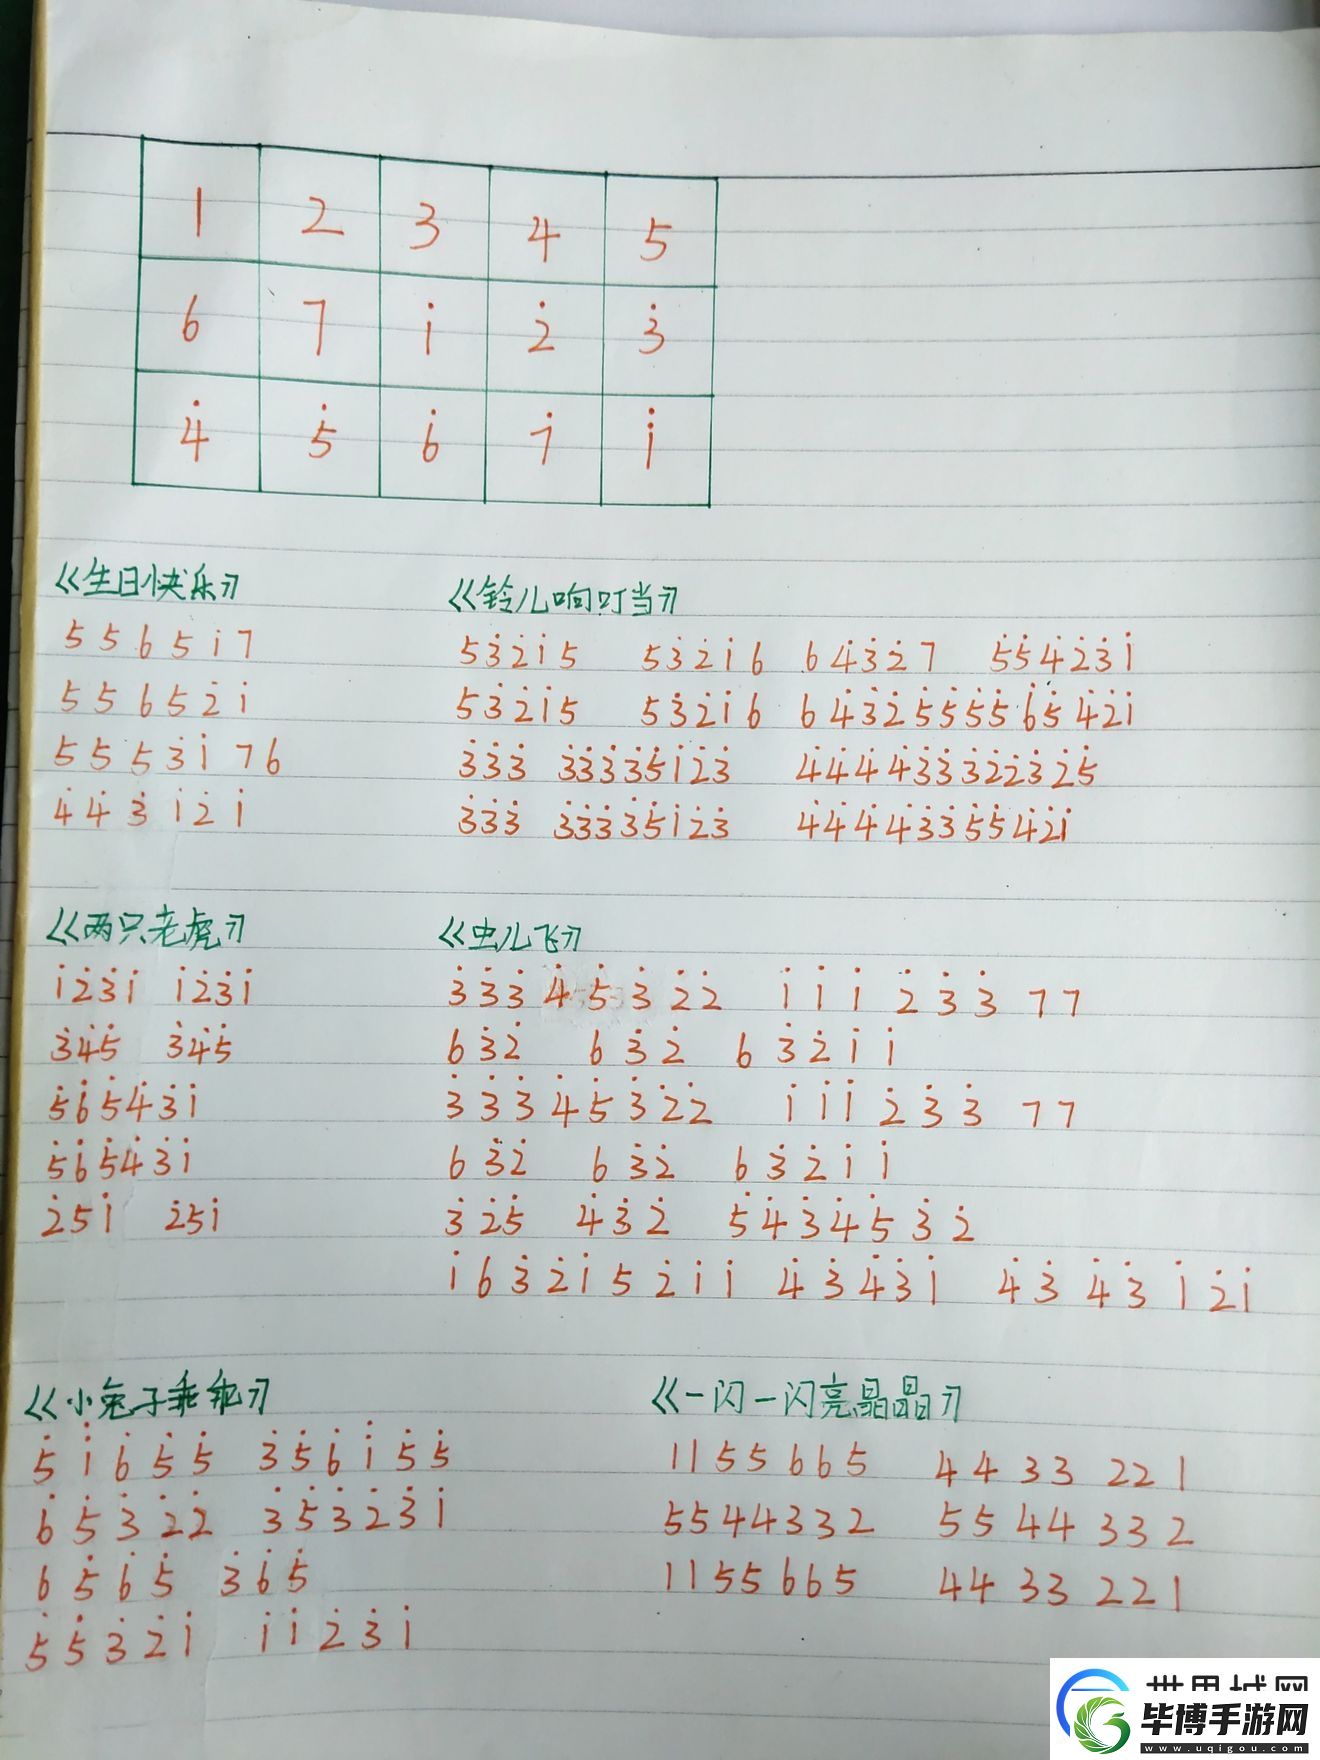 1 2 3 4 5
6 7 i 2̇ 3̇
4̇ 5̇ 6̇ 7̇ 1̈
《生日快乐》
5 5 6 5 i 7
5 5 6 5 2̇ i
5 5 5̇ 3̇ i 7 6
4̇ 4̇ 3̇ i 2̇ i
《铃儿响叮当》
5 3̇ 2̇ i 5 5 3̇ 2̇ i 6 6 4̇ 3̇ 2̇ 7 5̇ 5̇ 4̇ 2̇ 3̇ i
5 3̇ 2̇ i 5 5 3̇ 2̇ i 6 6 4̇ 3̇ 2̇ 5̇ 5̇ 5̇ 5̇ 6̇ 5̇ 4̇ 2̇ i
3̇ 3̇ 3̇ 3̇ 3̇ 3̇ 3̇ 5̇ i 2̇ 3̇ 4̇ 4̇ 4̇ 4̇ 3̇ 3̇ 3̇ 2̇ 2̇ 3̇ 2̇ 5̇
3̇ 3̇ 3̇ 3̇ 3̇ 3̇ 3̇ 5̇ i 2̇ 3̇ 4̇ 4̇ 4̇ 4̇ 3̇ 3̇ 5̇ 5̇ 4̇ 2̇ i
《两只老虎》
i 2̇ 3̇ i i 2̇ 3̇ i
3̇ 4̇ 5̇ 3̇ 4̇ 5̇
5̇ 6̇ 5̇ 4̇ 3̇ i
5̇ 6̇ 5̇ 4̇ 3̇ i
2̇ 5 i 2̇ 5 i
《虫儿飞》
3̇ 3̇ 3̇ 4̇ 5̇ 3̇ 2̇ 2̇ i i i 2̇ 3̇ 3̇ 7 7
6 3̇ 2̇ 6 3̇ 2̇ 6 3̇ 2̇ i i
3̇ 3̇ 3̇ 4̇ 5̇ 3̇ 2̇ 2̇ i i i 2̇ 3̇ 3̇ 7 7
6 3̇ 2̇ 6 3̇ 2̇ 6 3̇ 2̇ i i
3̇ 2̇ 5̇ 4̇ 3̇ 2̇ 5̇ 4̇ 3̇ 4̇ 5̇ 3̇ 2̇
i 6 3̇ 2̇ i 5 2̇ i i 4̇ 3̇ 4̇ 3̇ i 4̇ 3̇ 4̇ 3̇ i 2̇ i
《小兔子乖乖》
5̇ 1̈ 6̇ 5̇ 5̇ 3̇ 5̇ 6̇ i 5̇ 5̇
6̇ 5̇ 3̇ 2̇ 2̇ 3̇ 5̇ 3̇ 2̇ 3̇ i
6 5̇ 6̇ 5̇ 3̇ 6̇ 5̇
5̇ 5̇ 3̇ 2̇ i i i 2̇ 3̇ i
《一闪一闪亮晶晶》
1 1 5 5 6 6 5 4 4 3 3 2 2 1
5 5 4 4 3 3 2 5 5 4 4 3 3 2
1 1 5 5 6 6 5 4 4 3 3 2 2 1
毕博手游网
www.uqigou.com